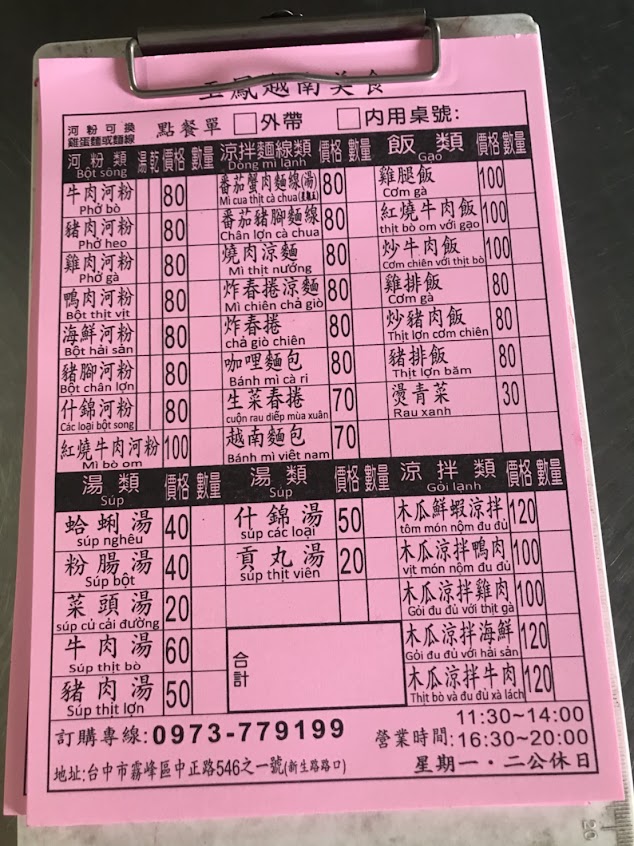 玉鳳越南美食
河粉可換
雞蛋麵或麵線
點餐單 □外帶 □內用桌號:
河粉類 湯 乾 價格 數量
Bột sông
牛肉河粉 80
Phở bò
豬肉河粉 80
Phở heo
雞肉河粉 80
Phở gà
鴨肉河粉 80
Bột thịt vịt
海鮮河粉 80
Bột hải sản
豬腳河粉 80
Bột chân lợn
什錦河粉 80
Các loại bột song
紅燒牛肉河粉 100
Mì bò om
涼拌麵線類 價格 數量
Dòng mì lạnh
番茄蟹肉麵線(湯) 80
Mì cua thịt cà chua
番茄豬腳麵線 80
Chân lợn cà chua
燒肉涼麵 80
Mì thịt nướng
炸春捲涼麵 80
Mì chiên chả giò
炸春捲 80
chả giò chiên
咖哩麵包 80
Bánh mì cà ri
生菜春捲 70
cuộn rau diếp mùa xuân
越南麵包 70
Bánh mì việt nam
飯類 價格 數量
Gạo
雞腿飯 100
Cơm gà
紅燒牛肉飯 100
thịt bò om với gạo
炒牛肉飯 100
Cơm chiên với thịt bò
雞排飯 80
Cơm gà
炒豬肉飯 80
Thịt lợn cơm chiên
豬排飯 80
Thịt lợn băm
燙青菜 30
Rau xanh
湯類 價格 數量
Súp
蛤蜊湯 40
súp nghêu
粉腸湯 40
Súp bột
菜頭湯 20
súp củ cải đường
牛肉湯 60
Súp thịt bò
豬肉湯 50
Súp thịt lợn
湯類 價格 數量
Súp
什錦湯 50
súp các loại
貢丸湯 20
súp thịt viên
合計
涼拌類 價格 數量
Gỏi lạnh
木瓜鮮蝦涼拌 120
tôm món nộm đu đủ
木瓜涼拌鴨肉 100
vịt món nộm đu đủ
木瓜涼拌雞肉 100
Gỏi đu đủ với thịt gà
木瓜涼拌海鮮 120
Gỏi đu đủ với hải sản
木瓜涼拌牛肉 120
Thịt bò và đu đủ xà lách
訂購專線:0973-779199
地址:台中市霧峰區中正路546之一號(新生路路口)
11:30~14:00
營業時間:16:30~20:00
星期一・二公休日